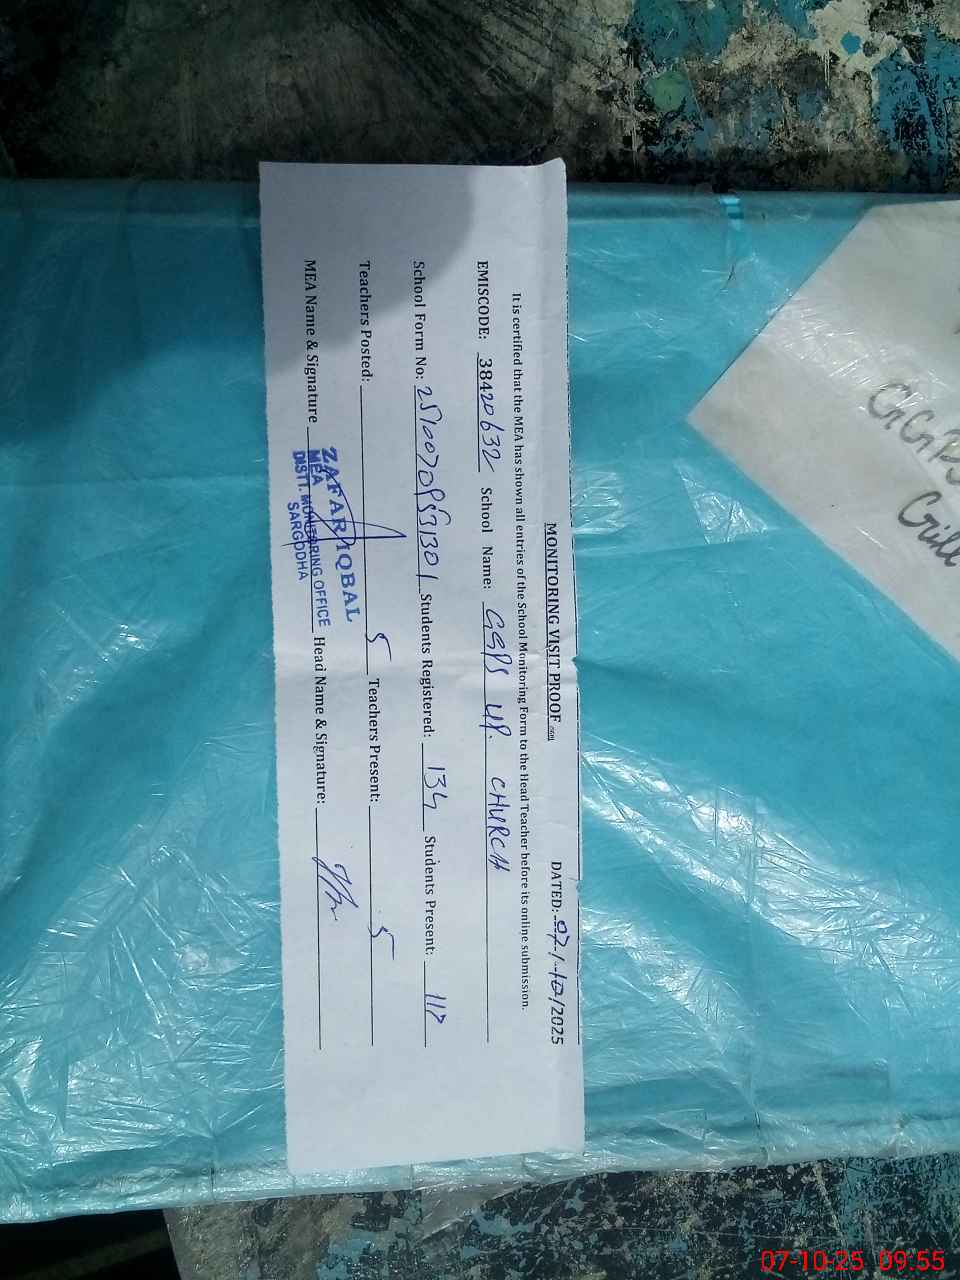 MONITORING VISIT PROOF
DATED: 07/10/2025
It is certified that the MEA has shown all entries of the School Monitoring Form to the Head Teacher before its online submission.
EMISCODE: 38420632 School Name: GGPS UP. CHURCH
School Form No: Students Registered: 134 Students Present: 117
Teachers Posted: 5 Teachers Present: 5
MEA Name & Signature Head Name & Signature:
ZAFAR IQBAL
MEA
DISTT. MONITORING OFFICE
SARGODHA
07-10-25 09.55